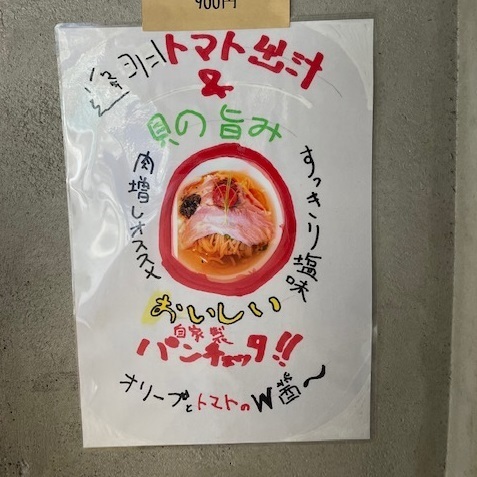 900円
トマト出汁
&
貝の旨み
肉増しオススメ
すっきり塩味
おいしい
自家製
パンチェッタ!!
オリーブとトマトのW